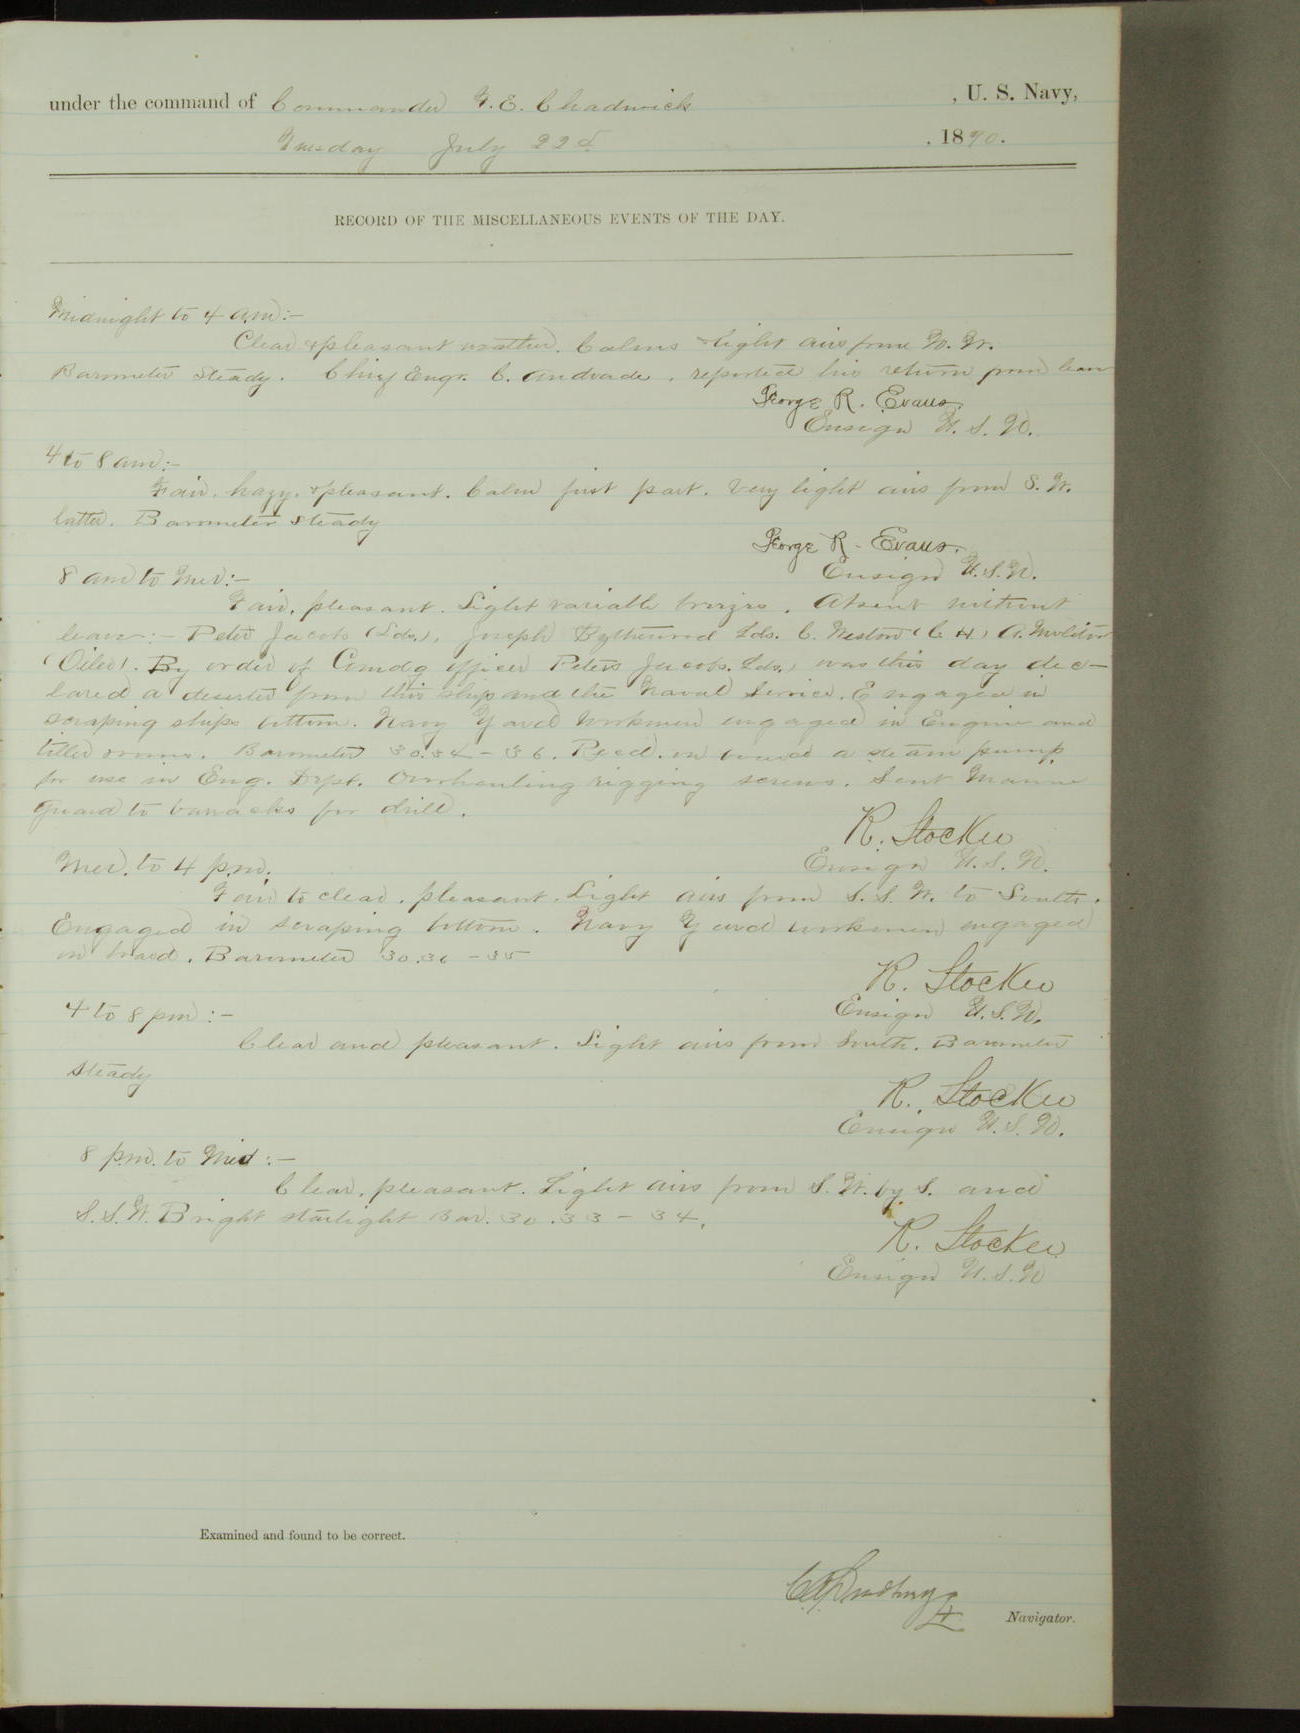 under the command of Commander F. E. Chadwick, U. S. Navy,
Tuesday July 22d, 1890.
RECORD OF THE MISCELLANEOUS EVENTS OF THE DAY.
Midnight to 4 a.m:-
Clear & pleasant weather. Calms & light airs from N. W.
Barometer steady. Chief Engr. C. Andrade, reported his return from leave
George R. Evans.
Ensign U. S. N.
4 to 8 am:-
Fair, hazy, & pleasant. Calm first part. Very light airs from S. W.
latter. Barometer steady
George R. Evans.
Ensign U.S.N.
8 am to Mer:-
Fair, pleasant. Light variable breezes. Absent without
leave:- Peter Jacobs (Lds.), Joseph Lds. C. Weston (C H) A. Moliter
(Oiler). By order of Comdg officer Peter Jacobs. Lds., was this day dec-
lared a deserter from this ship and the Naval Service. Engaged in
scraping ships bottom. Navy Yard workmen engaged in Engine and
tiller rooms. Barometer 30.34 - 36. Recd. on board a steam pump
for use in Eng. Dept. Overhauling rigging screws. Sent Marine
Guard to barracks for drill.
R. Stocker
Ensign U.S.N.
Mer. to 4 p.m.
Fair to clear, pleasant. Light airs from S. S. W. to South.
Engaged in scraping bottom. Navy Yard workmen engaged
on board. Barometer 30.36 - 35
R. Stocker
Ensign U.S.N.
4 to 8 pm:-
Clear and pleasant. Light airs from South. Barometer
steady
R. Stocker
Ensign U.S.N.
8 p.m. to Mid:-
Clear, pleasant. Light airs from S. W. by S. and
S.S.W. Bright starlight Bar. 30.33 - 34.
R. Stocker
Ensign U.S.N
Examined and found to be correct.
Navigator.